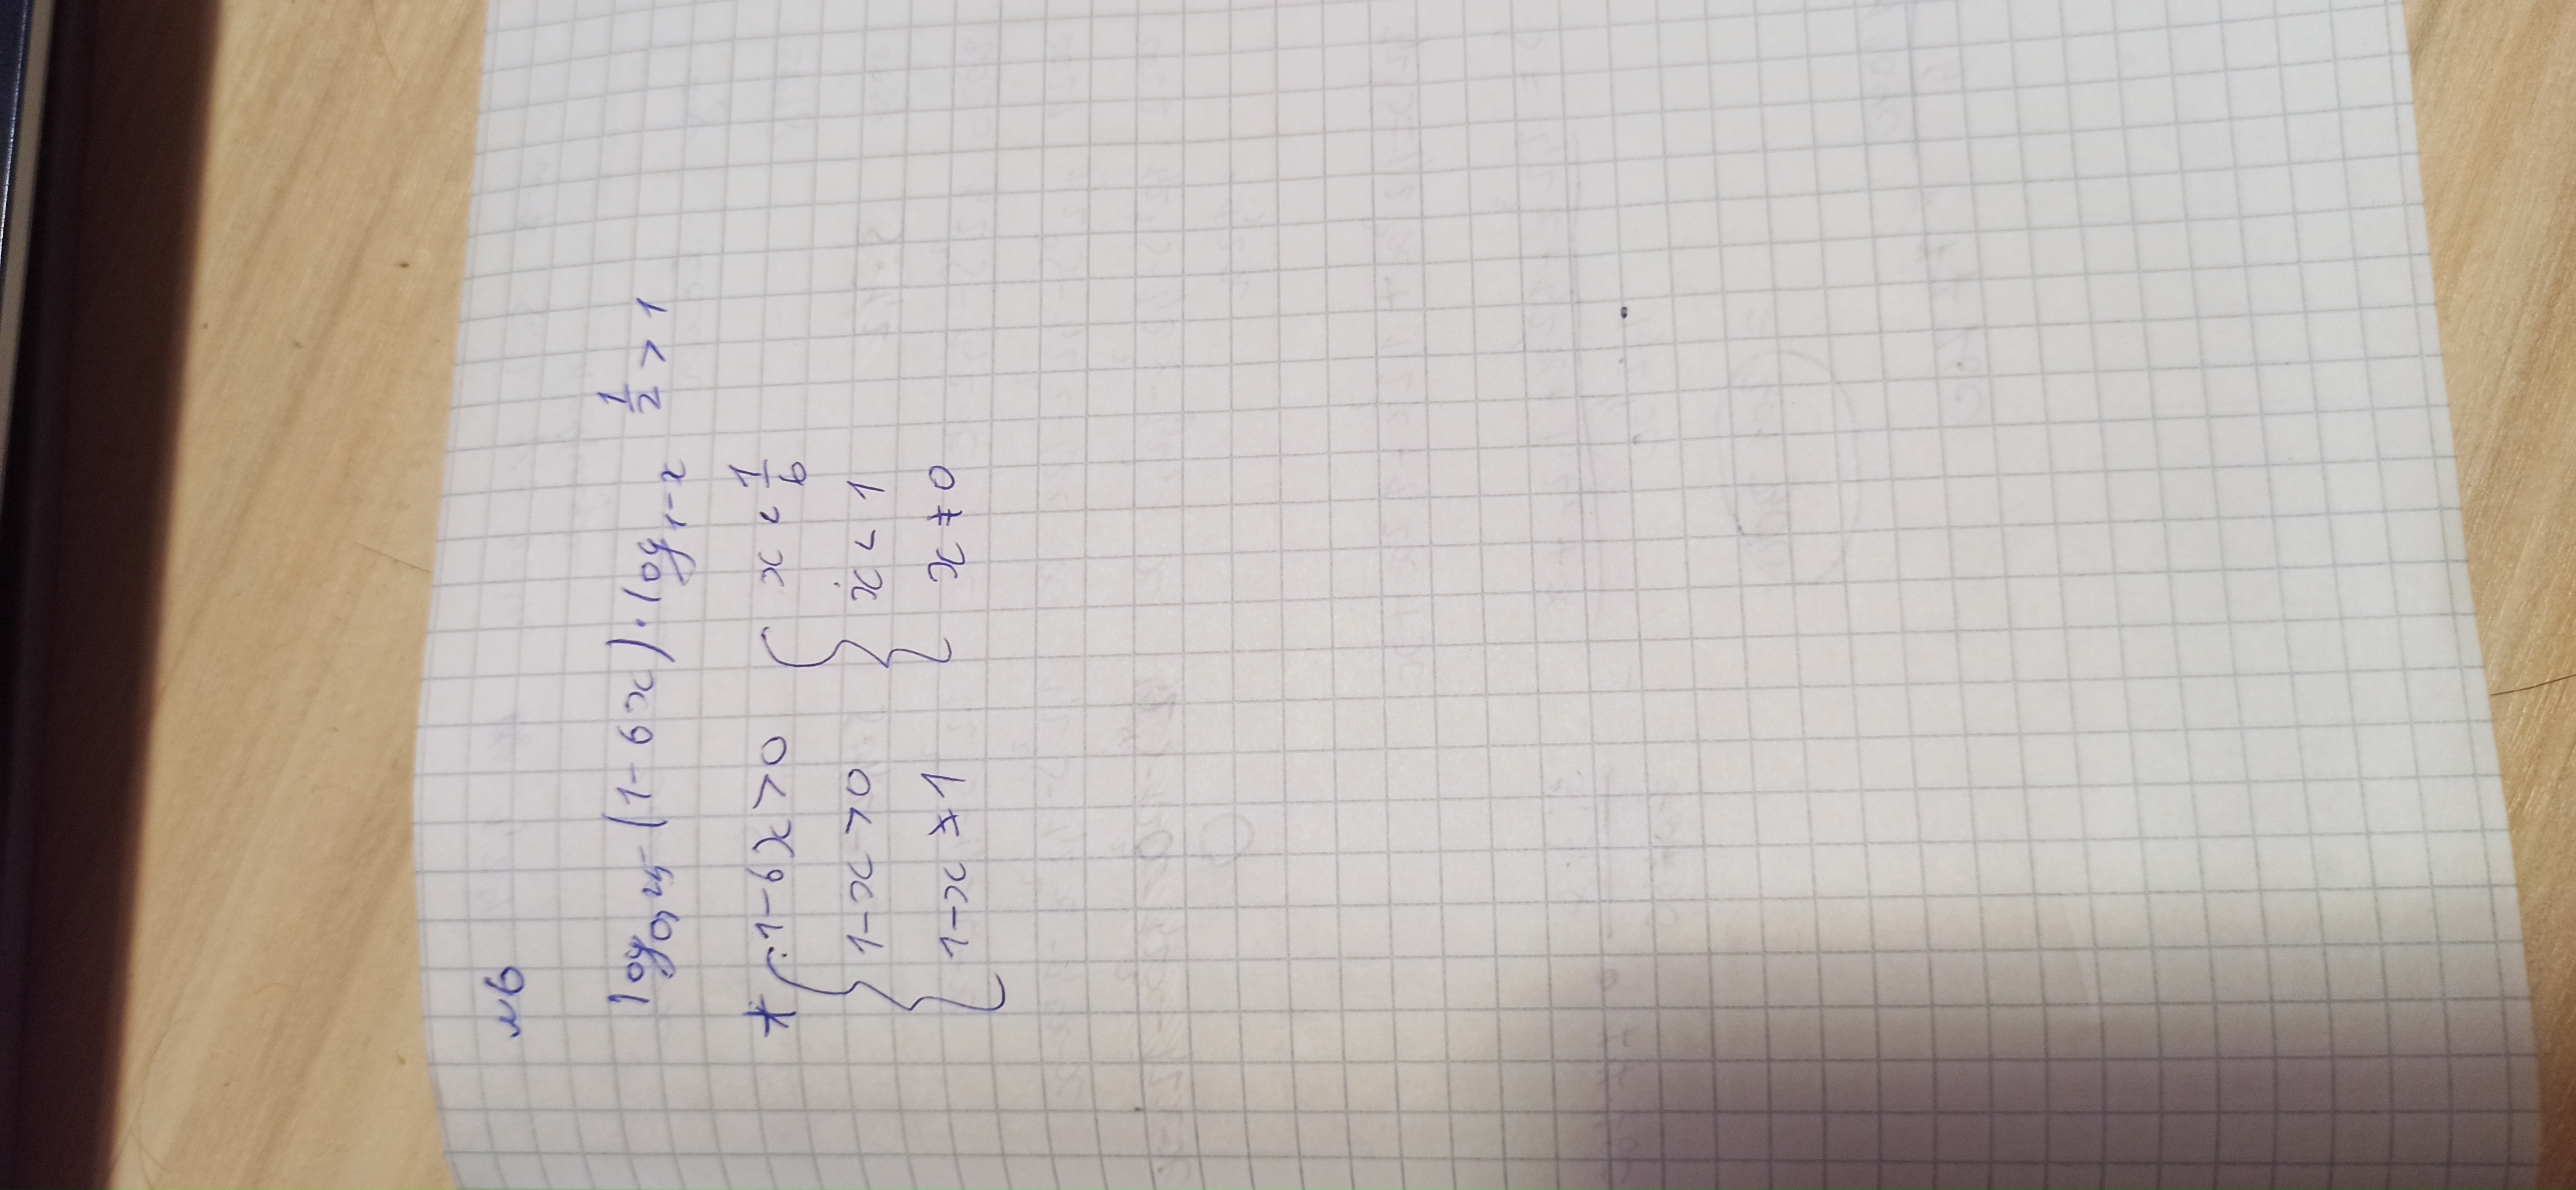 №6
log₀,₂₅ (1-6x) · log₁₋ₓ 1/2 > 1
* { 1-6x > 0 { x < 1/6
1-x > 0 x < 1
1-x ≠ 1 x ≠ 0